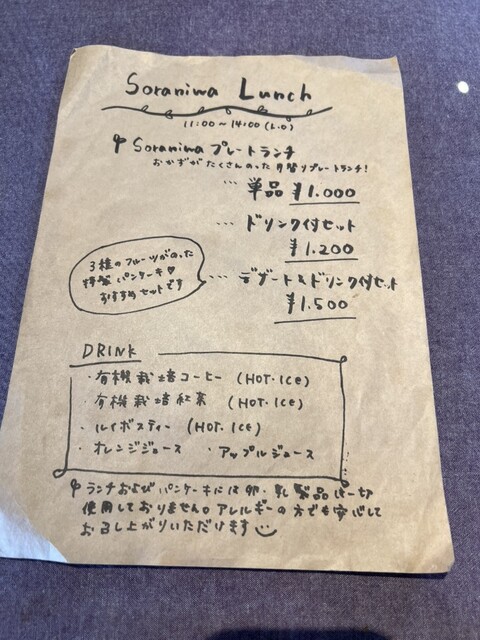 Soraniwa Lunch
11:00～14:00 (L.O)
Soraniwa プレートランチ
おかずがたくさんのった 月替りプレートランチ!
… 単品 ¥1.000
… ドリンク付セット
¥1.200
… デザート&ドリンク付セット
¥1.500
3種のフルーツがのった
特製 パンケーキ♥
おすすめセットです
DRINK
・有機栽培コーヒー (HOT・ICE)
・有機栽培紅茶 (HOT・ICE)
・ルイボスティー (HOT・ICE)
・オレンジジュース ・アップルジュース
ランチおよびパンケーキには卵・乳製品は一切
使用しておりません。アレルギーの方でも安心して
お召し上がりいただけます